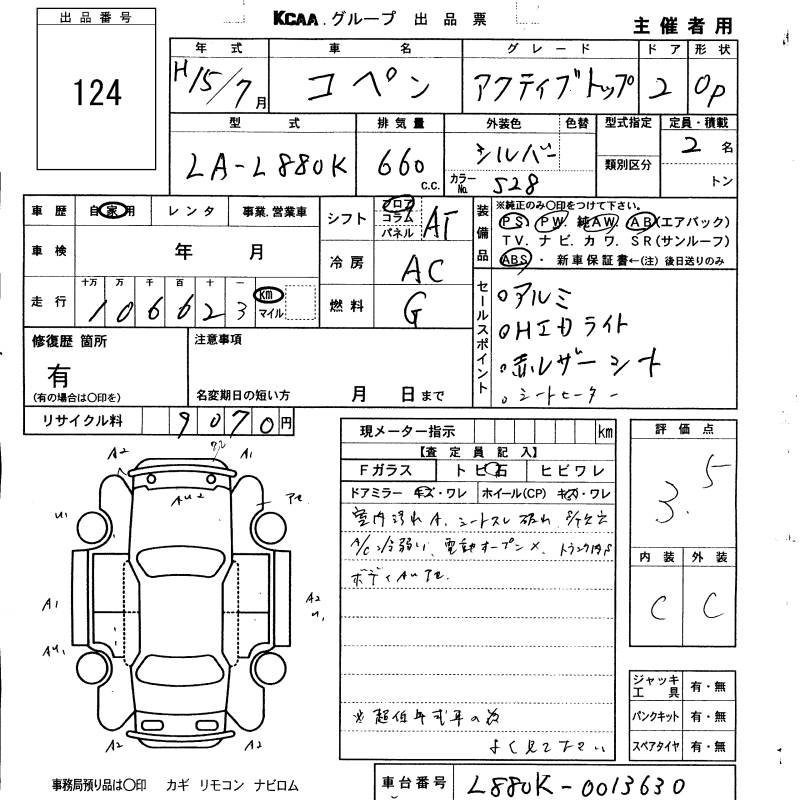 出品番号
KCAA.グループ 出品票
主催者用
124
年式 車名 グレード ドア 形状
H15/7月 コペン アクティブトップ 2 Op
型式 排気量 外装色 色替 型式指定 定員・積載
LA-L880K 660 c.c. シルバー 類別区分 2名
カラーNo. S28 トン
車歴 自家用 レンタ 事業.営業車
車検 年 月
走行 十万 万 千 百 十 一
106623 km マイル
シフト フロア コラム パネル AT
冷房 AC
燃料 G
装備品 ※純正のみ〇印をつけて下さい。
PS. PW. 純AW. AB(エアバック)
TV. ナビ. カワ. SR(サンルーフ)
ABS・ 新車保証書←(注)後日送りのみ
セールスポイント
アルミ
HIDライト
赤レザーシート
シートヒーター
修復歴 箇所
有
(有の場合は〇印を)
注意事項
名変期日の短い方 月 日まで
リサイクル料 9070円
現メーター指示 km
【査定員記入】
Fガラス トビ石 ヒビワレ
ドアミラー キズ・ワレ ホイール(CP) キズ・ワレ
室内汚れA. シートスレ 破れ
A/C冷弱い. 電動オープン×.
ボディ
※超低年式車の為
よく見て下さい
評価点
3.5
内装 外装
C C
ジャッキ 工具 有・無
パンクキット 有・無
スペアタイヤ 有・無
A2 A1
AU2
U1
A1 A2
U1
AU1
A2 A2
事務局預り品は〇印 カギ リモコン ナビロム
車台番号 L880K-0013630